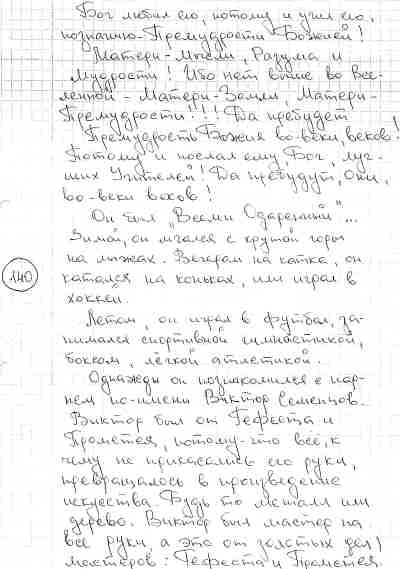 Бог любил его, потому и учил его,
познанию-Премудрости Божией!
Матери-Мысли, Разума и
Мудрости! Ибо нет выше во Все-
ленной - Матери-Земли, Матери-
Премудрости!!! Да пребудет
Премудрость Божия во-веки, веков!
Потому и послал ему, Бог, луч-
ших Учителей! Да пребудут, Они,
во-веки веков!
Он был „Всеми Одаренный"...
Зимой, он мчался с крутой горы
на лыжах. Вечером на катке, он
катался на коньках, или играл в
хоккей.
140
Летом, он играл в футбол, за-
нимался спортивной гимнастикой,
боксом, лёгкой атлетикой.
Однажды он познакомился с пар-
нем по-имени Виктор Семенцов.
Виктор был от Гефеста и
Прометея, потому-что всё, к
чему не прикасались его руки,
превращалось в произведение
искусства. Будь то металл или
дерево. Виктор был мастер на
все руки а это от золотых дел,
мастеров: Гефеста и Прометея.